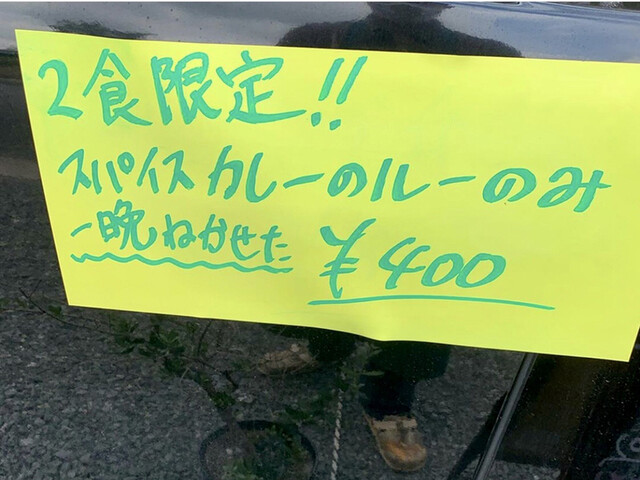 2食限定!!
スパイスカレーのルーのみ
一晩ねかせた ¥400